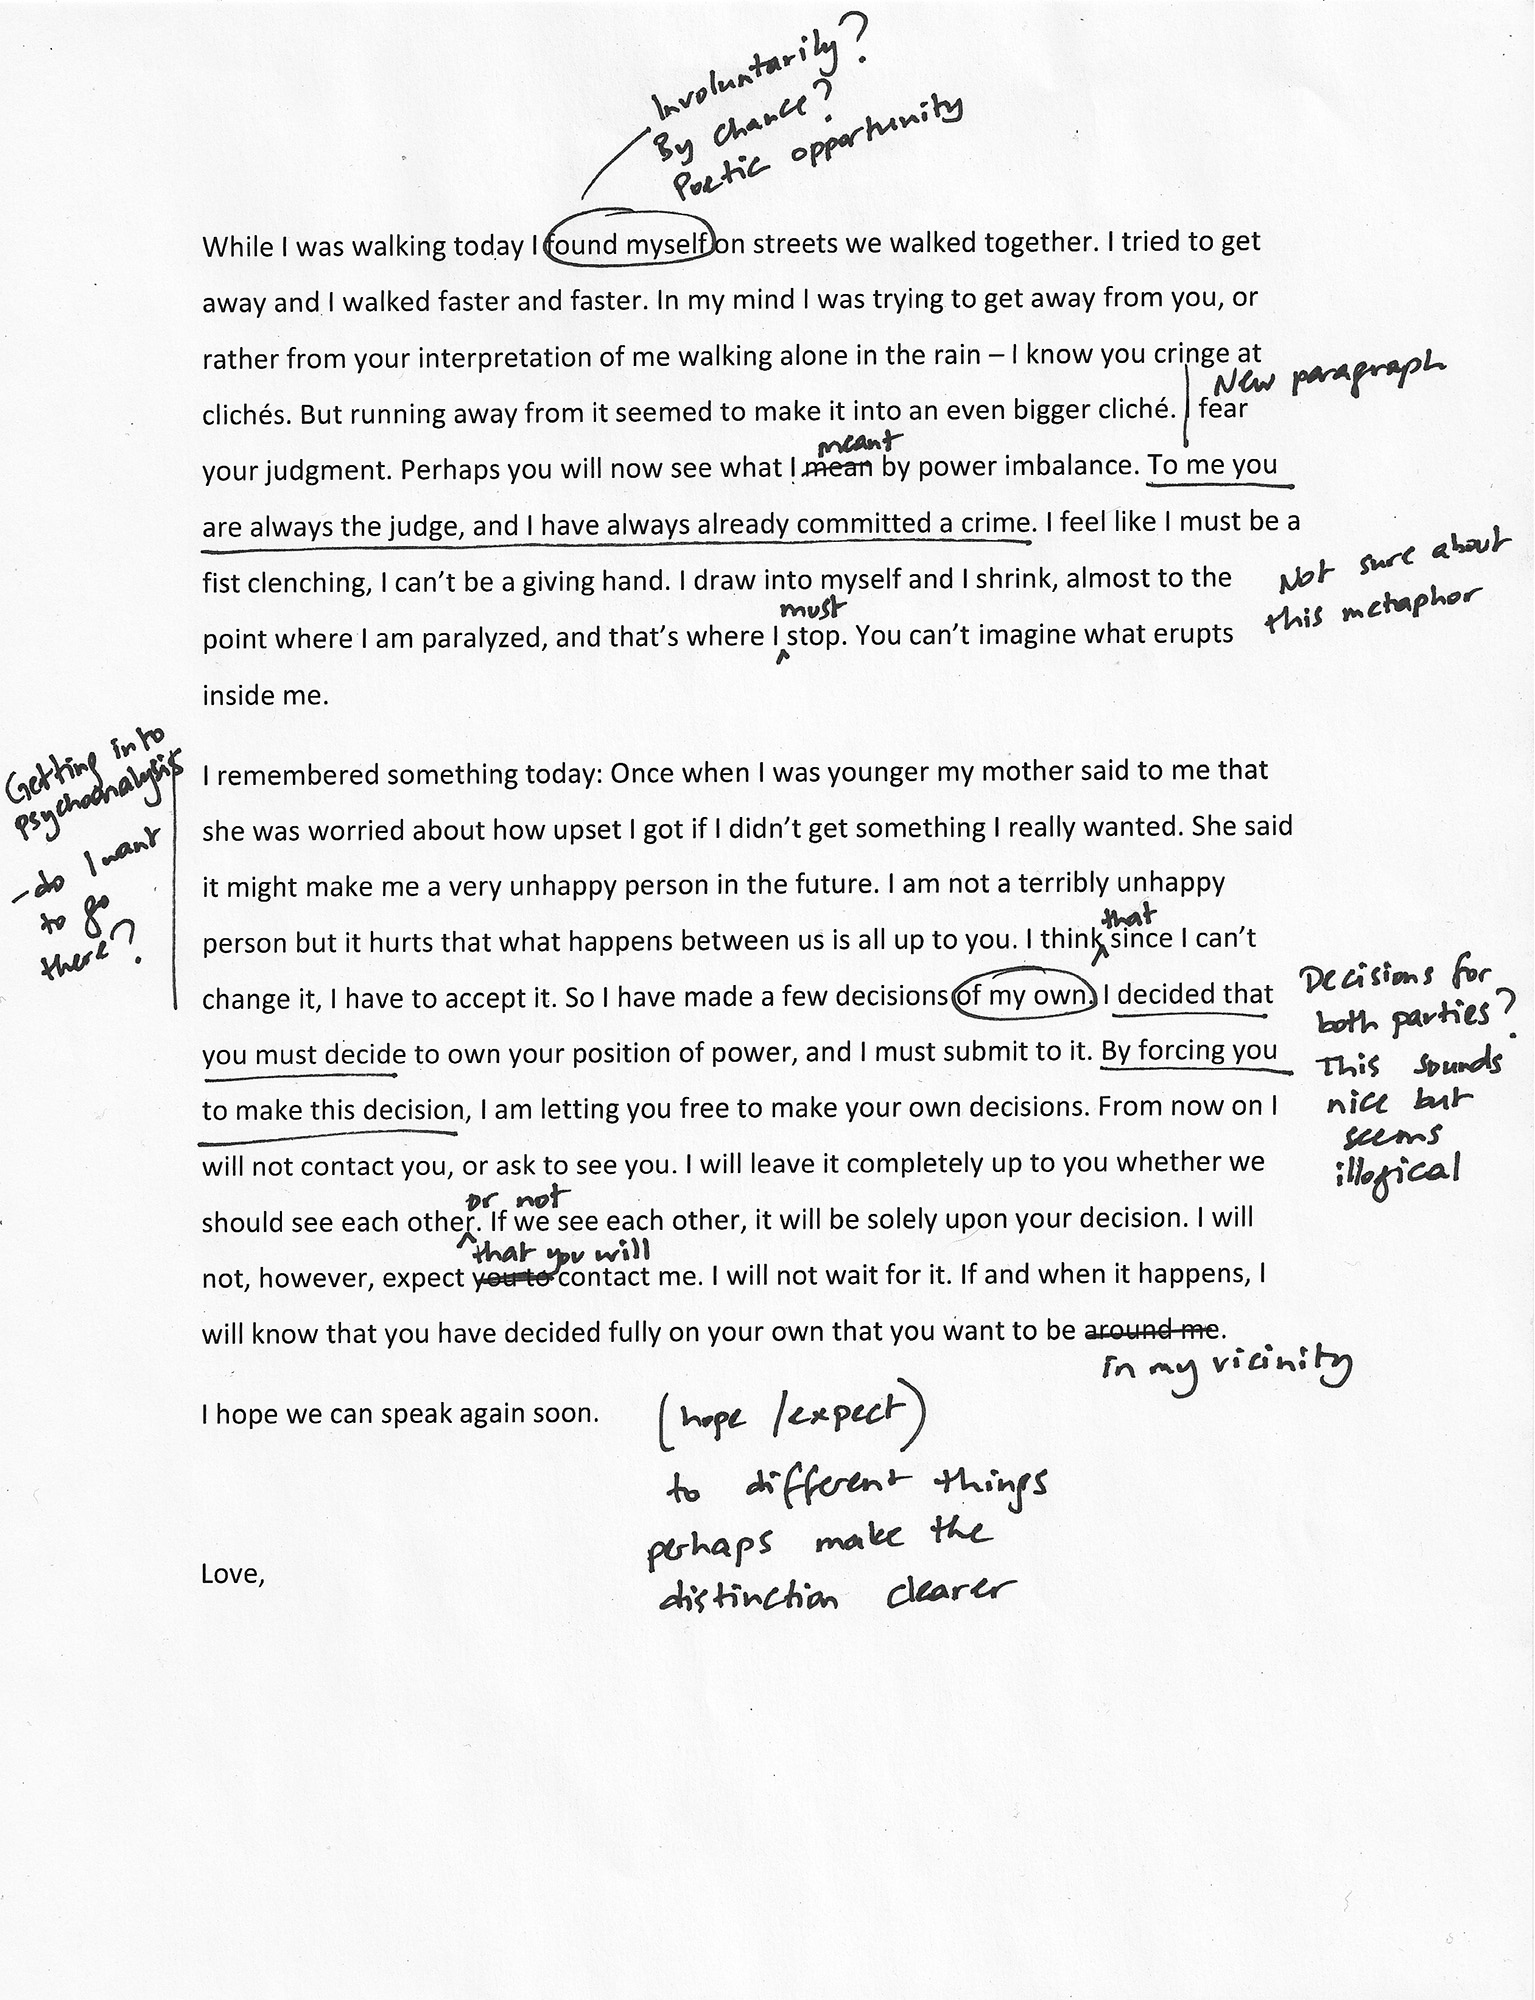 Involuntarily?
By chance?
Poetic opportunity
While I was walking today I found myself on streets we walked together. I tried to get
away and I walked faster and faster. In my mind I was trying to get away from you, or
rather from your interpretation of me walking alone in the rain – I know you cringe at
New paragraph
clichés. But running away from it seemed to make it into an even bigger cliché. I fear
meant
your judgment. Perhaps you will now see what I mean by power imbalance. To me you
are always the judge, and I have always already committed a crime. I feel like I must be a
fist clenching, I can't be a giving hand. I draw into myself and I shrink, almost to the
Not sure about
this metaphor
must
point where I am paralyzed, and that's where I stop. You can't imagine what erupts
inside me.
Getting into
psychoanalysis
– do I want
to go
there?
I remembered something today: Once when I was younger my mother said to me that
she was worried about how upset I got if I didn't get something I really wanted. She said
it might make me a very unhappy person in the future. I am not a terribly unhappy
that
person but it hurts that what happens between us is all up to you. I think since I can't
change it, I have to accept it. So I have made a few decisions of my own. I decided that
you must decide to own your position of power, and I must submit to it. By forcing you
to make this decision, I am letting you free to make your own decisions. From now on I
Decisions for
both parties?
This sounds
nice but
seems
illogical
will not contact you, or ask to see you. I will leave it completely up to you whether we
or not
should see each other. If we see each other, it will be solely upon your decision. I will
that you will
not, however, expect you to contact me. I will not wait for it. If and when it happens, I
will know that you have decided fully on your own that you want to be around me.
in my vicinity
I hope we can speak again soon.
(hope / expect)
to different things
perhaps make the
distinction clearer
Love,